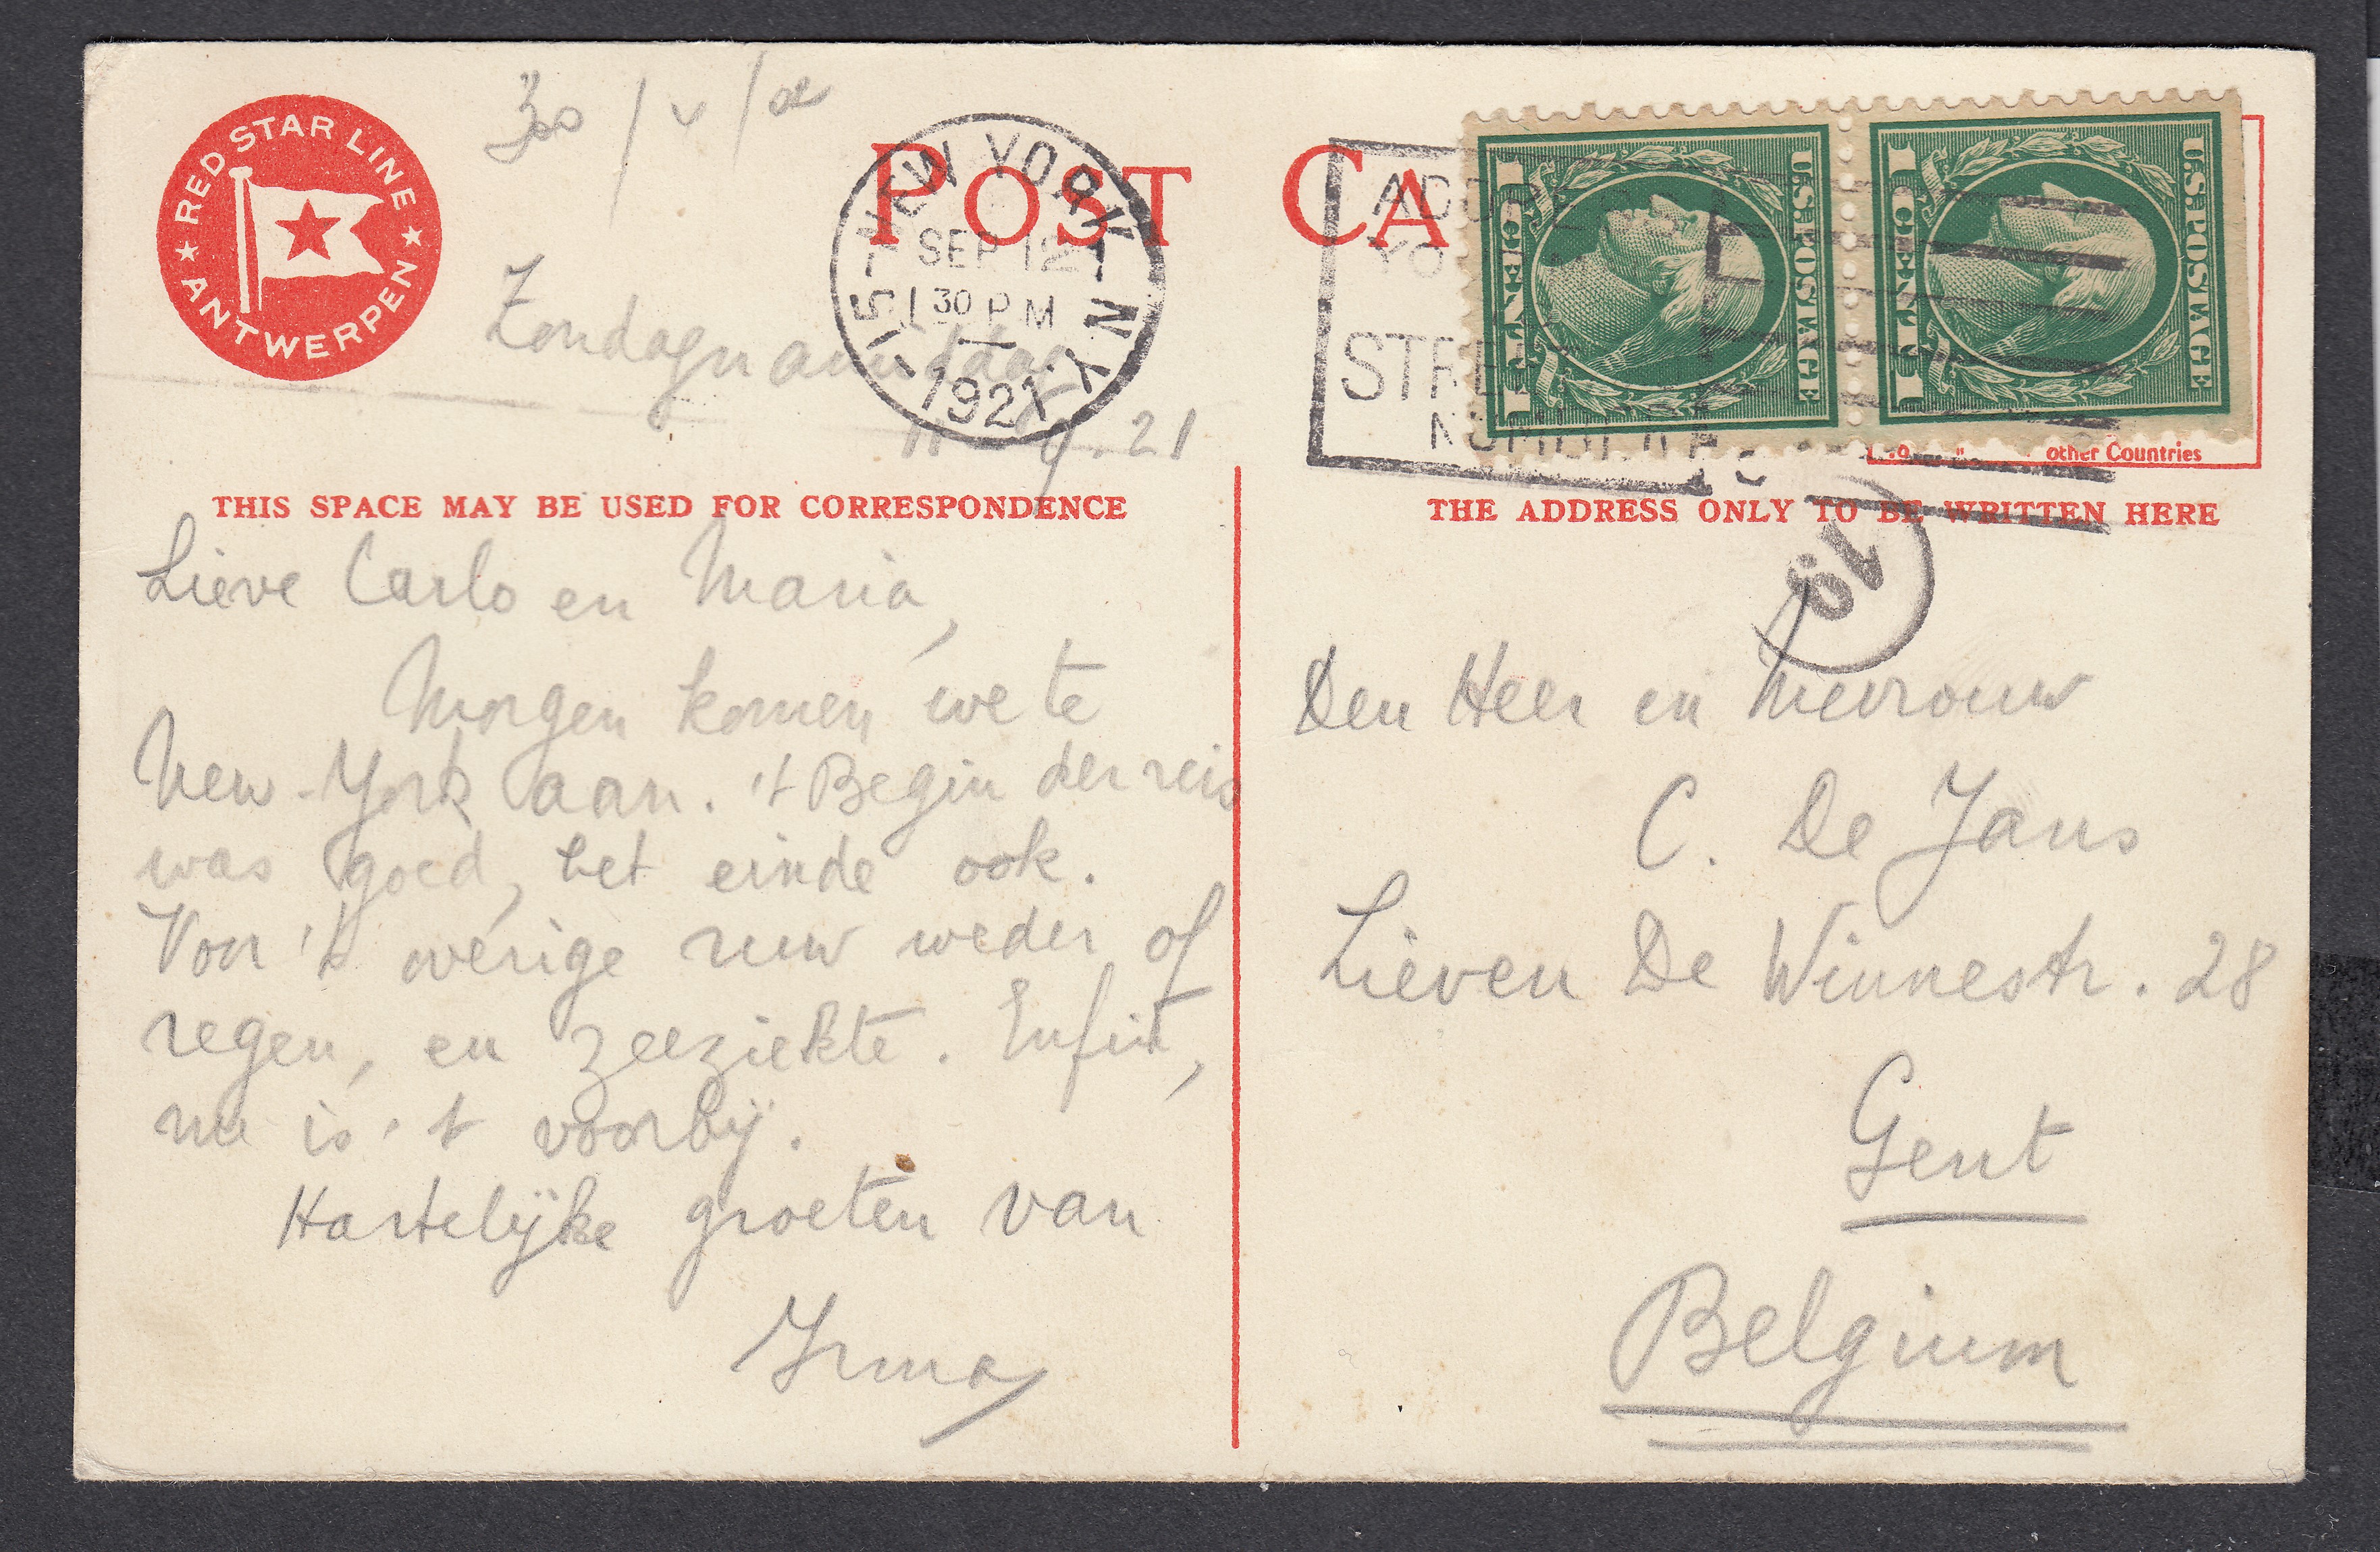 RED STAR LINE
ANTWERPEN
POST CA
NEW YORK N.Y.
SEP 12
30 PM
1921
STREET
NUMBER
U.S. POSTAGE
1 CENT 1
U.S. POSTAGE
1 CENT 1
other Countries
Zondagnamiddag
11-9.21
THIS SPACE MAY BE USED FOR CORRESPONDENCE
THE ADDRESS ONLY TO BE WRITTEN HERE
Lieve Carlo en Maria,
Morgen komen we te
New-York aan. 't Begin der reis
was goed, het einde ook.
Voor 't overige ruw weder of
regen, en zeeziekte. Enfin,
nu is 't voorbij.
Hartelijke groeten van
Irma
10
Den Heer en Mevrouw
C. De Jans
Lieven De Winnestr. 28
Gent
Belgium